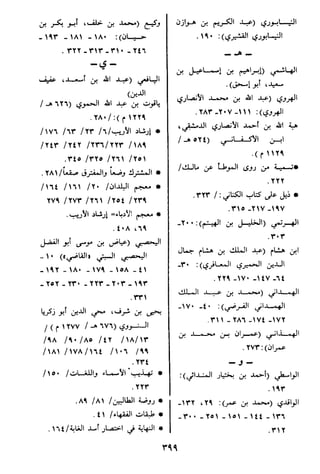 النيسابوري (عبد الكريم بن هوازن
النيسابوري القشيري): ١٩٠.
- هـ -
الهاشمي (إبراهيم بن إسماعيل بن
سعيد، أبو إسحق).
الهروي (عبد الله بن محمد الأنصاري
الهروي): ١١١- ٢٠٧- ٢٨٣.
هبة الله بن أحمد الأنصاري الدمشقي،
ابن الأكفاني (٥٢٤ هـ /
١١٢٩ م).
٢٢٢.
* ذيل على كتاب الكتاني: / ٣٢٣.
١٩٧- ٢١٧- ٣١٥.
٣٠٣.
ابن هشام (عبد الملك بن هشام جمال
الدين الحميري المعافري): ٣٠-
٦٤- ١٤٤- ١٧٠- ٢٢٩.
الهمداني (محمد بن عبد الملك
الهمداني الفرضي): ٤٠- ١٧٠-
١٧٢- ١٧٤- ٢٨٦- ٣١١.
عمران): ٢٧٣.
- و -
الواسطي (أحمد بن بختيار الندائي):
١٩٣.
الواقدي (محمد بن عمر): ٢٩، ١٣٢-
١٣٦- ١٤٤- ١٥١- ٢٥١- ٣٠٠-
٣١٢.
وكيع (محمد بن خلف، أبو بكر بن
حيان): ١٨٠- ١٨١- ١٩٣-
٢٤٦- ٣١٠- ٣١٣- ٣٢٢.
- ي -
اليافعي (عبد الله بن أسعد، عفيف
الدين)
ياقوت بن عبد الله الحموي (٦٢٦ هـ /
١٢٢٩ م): / ٢٨٠.
* إرشاد الأريب/ ٦/ ٢٣/ ٦٣/ ١٧٦/
١٨٩/ ٢٢٣/ ٢٣٦/ ٢٤٢/ ٢٤٣/
٢٥١/ ٢٦١/ ٣٢٥/ ٣٤٥.
* المشترك وضعا والمفترق صقعا/ ٢٨١.
* معجم البلدان/ ٢٠/ ١٦١/ ١٦٤/
٢٣٩/ ٢٥٤/ ٢٧١/ ٢٧٣/ ٢٧٩
* معجم الأدباء= إرشاد الأريب.
٦٩، ٤٠٨.
اليحصبي (عياض بن موسى أبو الفضل
اليحصبي السبتي «القاضي»): ١٠-
٤١- ١٥٨- ١٧٩- ١٨٠- ١٩٢-
١٩٣- ٢٠٣- ٢٢٣- ٢٣٠- ٢٥٢-
٣٣١.
يحيى بن شرف، محي الدين أبو زكريا
النووي (٦٧٦ هـ / ١٢٧٧ م) /
١٣/ ١٨/ ٤٢/ ٨٥/ ٩٠/ ٩٨/
٩٩/ ١٠٦/ ١٦٤/ ١٧٨/ ١٨١/
٢٣٤.
* تهذيب الأسماء واللغات/ ١٥٠/
٢٢٣.
* روضة الطالبين/ ٨١/ ٨٩.
* طبقات الفقهاء/ ٤١.
* النهاية في اختصار أسد الغابة/ ١٦٤.
٣٩٩